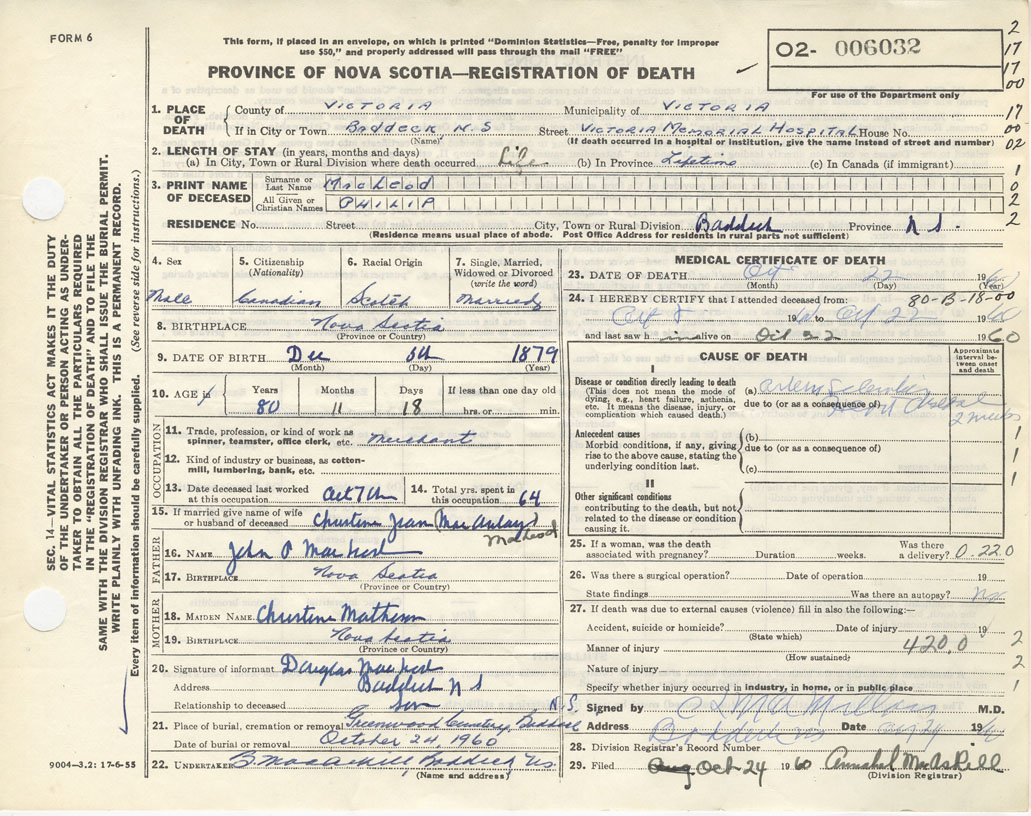 FORM 6
This form, if placed in an envelope, on which is printed "Dominion Statistics—Free, penalty for improper
use $50," and properly addressed will pass through the mail "FREE"
02- 006032
For use of the Department only
PROVINCE OF NOVA SCOTIA—REGISTRATION OF DEATH
2
17
17
00
17
00
02
1
0
2
2
1. PLACE OF DEATH
County of VICTORIA Municipality of VICTORIA
If in City or Town BADDECK, N.S Street VICTORIA MEMORIAL HOSPITAL House No.
(Name) (If death occurred in a hospital or institution, give the name instead of street and number)
2. LENGTH OF STAY (in years, months and days)
(a) In City, Town or Rural Division where death occurred Life (b) In Province Lifetime (c) In Canada (if immigrant)
3. PRINT NAME OF DECEASED
Surname or Last Name MacLeod
All Given or Christian Names PHILIP
RESIDENCE No. Street City, Town or Rural Division Baddeck Province N S.
(Residence means usual place of abode. Post Office Address for residents in rural parts not sufficient)
4. Sex
Male
5. Citizenship (Nationality)
Canadian
6. Racial Origin
Scotch
7. Single, Married, Widowed or Divorced (write the word)
Married
8. BIRTHPLACE Nova Scotia
(Province or Country)
9. DATE OF BIRTH Dec 5th 1879
(Month) (Day) (Year)
10. AGE in
Years Months Days If less than one day old
80 11 18 hrs. or min.
OCCUPATION
11. Trade, profession, or kind of work as
spinner, teamster, office clerk, etc. Merchant
12. Kind of industry or business, as cotton-
mill, lumbering, bank, etc.
13. Date deceased last worked
at this occupation Oct 7th
14. Total yrs. spent in
this occupation 64
15. If married give name of wife
or husband of deceased Christene Jean MacAulay
McLeod
FATHER
16. NAME John P MacLeod
17. BIRTHPLACE Nova Scotia
(Province or Country)
MOTHER
18. MAIDEN NAME Christene Matheson
19. BIRTHPLACE Nova Scotia
(Province or Country)
20. Signature of informant Douglas MacLeod
Address Baddeck N S
Relationship to deceased Son
21. Place of burial, cremation or removal Greenwood Cemetery, Baddeck N.S.
Date of burial or removal October 24, 1960
22. UNDERTAKER Baddeck N.S.
(Name and address)
MEDICAL CERTIFICATE OF DEATH
23. DATE OF DEATH Oct 22 1960
(Month) (Day) (Year)
24. I HEREBY CERTIFY that I attended deceased from: 80-B-18-00
Oct 8 1960 to Oct 22 1960
and last saw h im alive on Oct 22 1960
CAUSE OF DEATH
Approximate interval between onset and death
I
Disease or condition directly leading to death
(This does not mean the mode of
dying, e.g., heart failure, asthenia,
etc. It means the disease, injury, or
complication which caused death.)
(a)
due to (or as a consequence of)
2 weeks
Antecedent causes
Morbid conditions, if any, giving
rise to the above cause, stating the
underlying condition last.
(b)
due to (or as a consequence of)
(c)
1
1
1
1
II
Other significant conditions
contributing to the death, but not
related to the disease or condition
causing it.
25. If a woman, was the death
associated with pregnancy? Duration weeks. Was there
a delivery? 0.220
26. Was there a surgical operation? Date of operation 19
State findings Was there an autopsy? No
27. If death was due to external causes (violence) fill in also the following:—
Accident, suicide or homicide? Date of injury 19
(State which)
Manner of injury 420.0
(How sustained)
Nature of injury
Specify whether injury occurred in industry, in home, or in public place
2
2
1
Signed by C L MacMillan M.D.
Address Baddeck NS Date 24 1960
28. Division Registrar's Record Number
29. Filed Aug Oct 24 1960 Annabel MacAskill
(Division Registrar)
SEC. 14—VITAL STATISTICS ACT MAKES IT THE DUTY
OF THE UNDERTAKER OR PERSON ACTING AS UNDER-
TAKER TO OBTAIN ALL THE PARTICULARS REQUIRED
IN THE "REGISTRATION OF DEATH" AND TO FILE THE
SAME WITH THE DIVISION REGISTRAR WHO SHALL ISSUE THE BURIAL PERMIT.
WRITE PLAINLY WITH UNFADING INK. THIS IS A PERMANENT RECORD.
Every item of information should be carefully supplied. (See reverse side for instructions.)
9004—3.2: 17-6-55